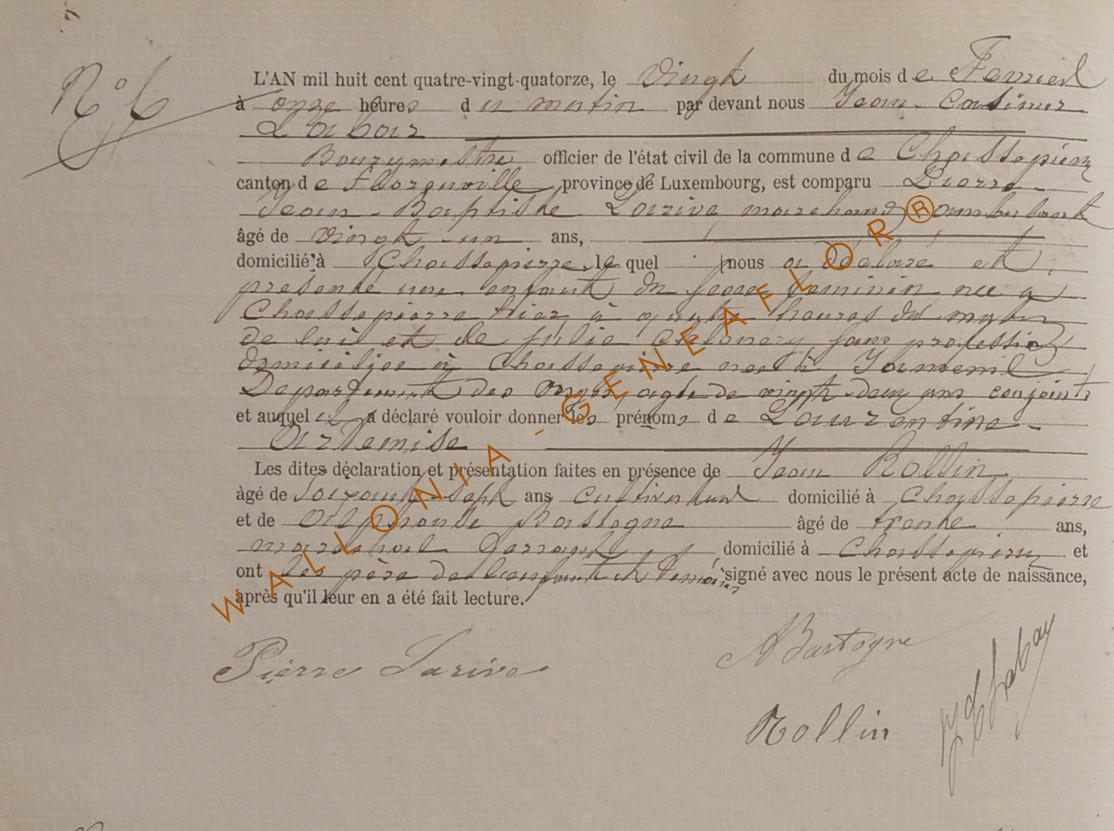 N° 6
L'AN mil huit cent quatre-vingt-quatorze, le Vingt du mois de Fevrier
à onze heures du matin par devant nous Jean-Casimir
Labar
Bourgmestre officier de l'état civil de la commune de Chassepierre
canton de Florenville, province de Luxembourg, est comparu Pierre
Jean-Baptiste Larive marchand ambulant
âgé de vingt-un ans,
domicilié à Chassepierre, le quel nous a déclaré et
présenté une enfant du sexe féminin née à
Chassepierre hier à quatre heures du matin
de lui et de Julie sans profession
domiciliée à Chassepierre née à
Departement des agée de vingt-deux ans conjoints
et auquel il a déclaré vouloir donner les prénoms de Laurentine-
Artemise
Les dites déclaration et présentation faites en présence de Jean Rollin
âgé de soixante sept ans cultivateur domicilié à Chassepierre
et de Bastogne âgé de trente ans,
marechal ferrant, domicilié à Chassepierre et
ont les père de l'enfant et témoins signé avec nous le présent acte de naissance,
après qu'il leur en a été fait lecture.
Pierre Larive
ABastogne
Rollin
WALLONIA - GENEAFLOR®